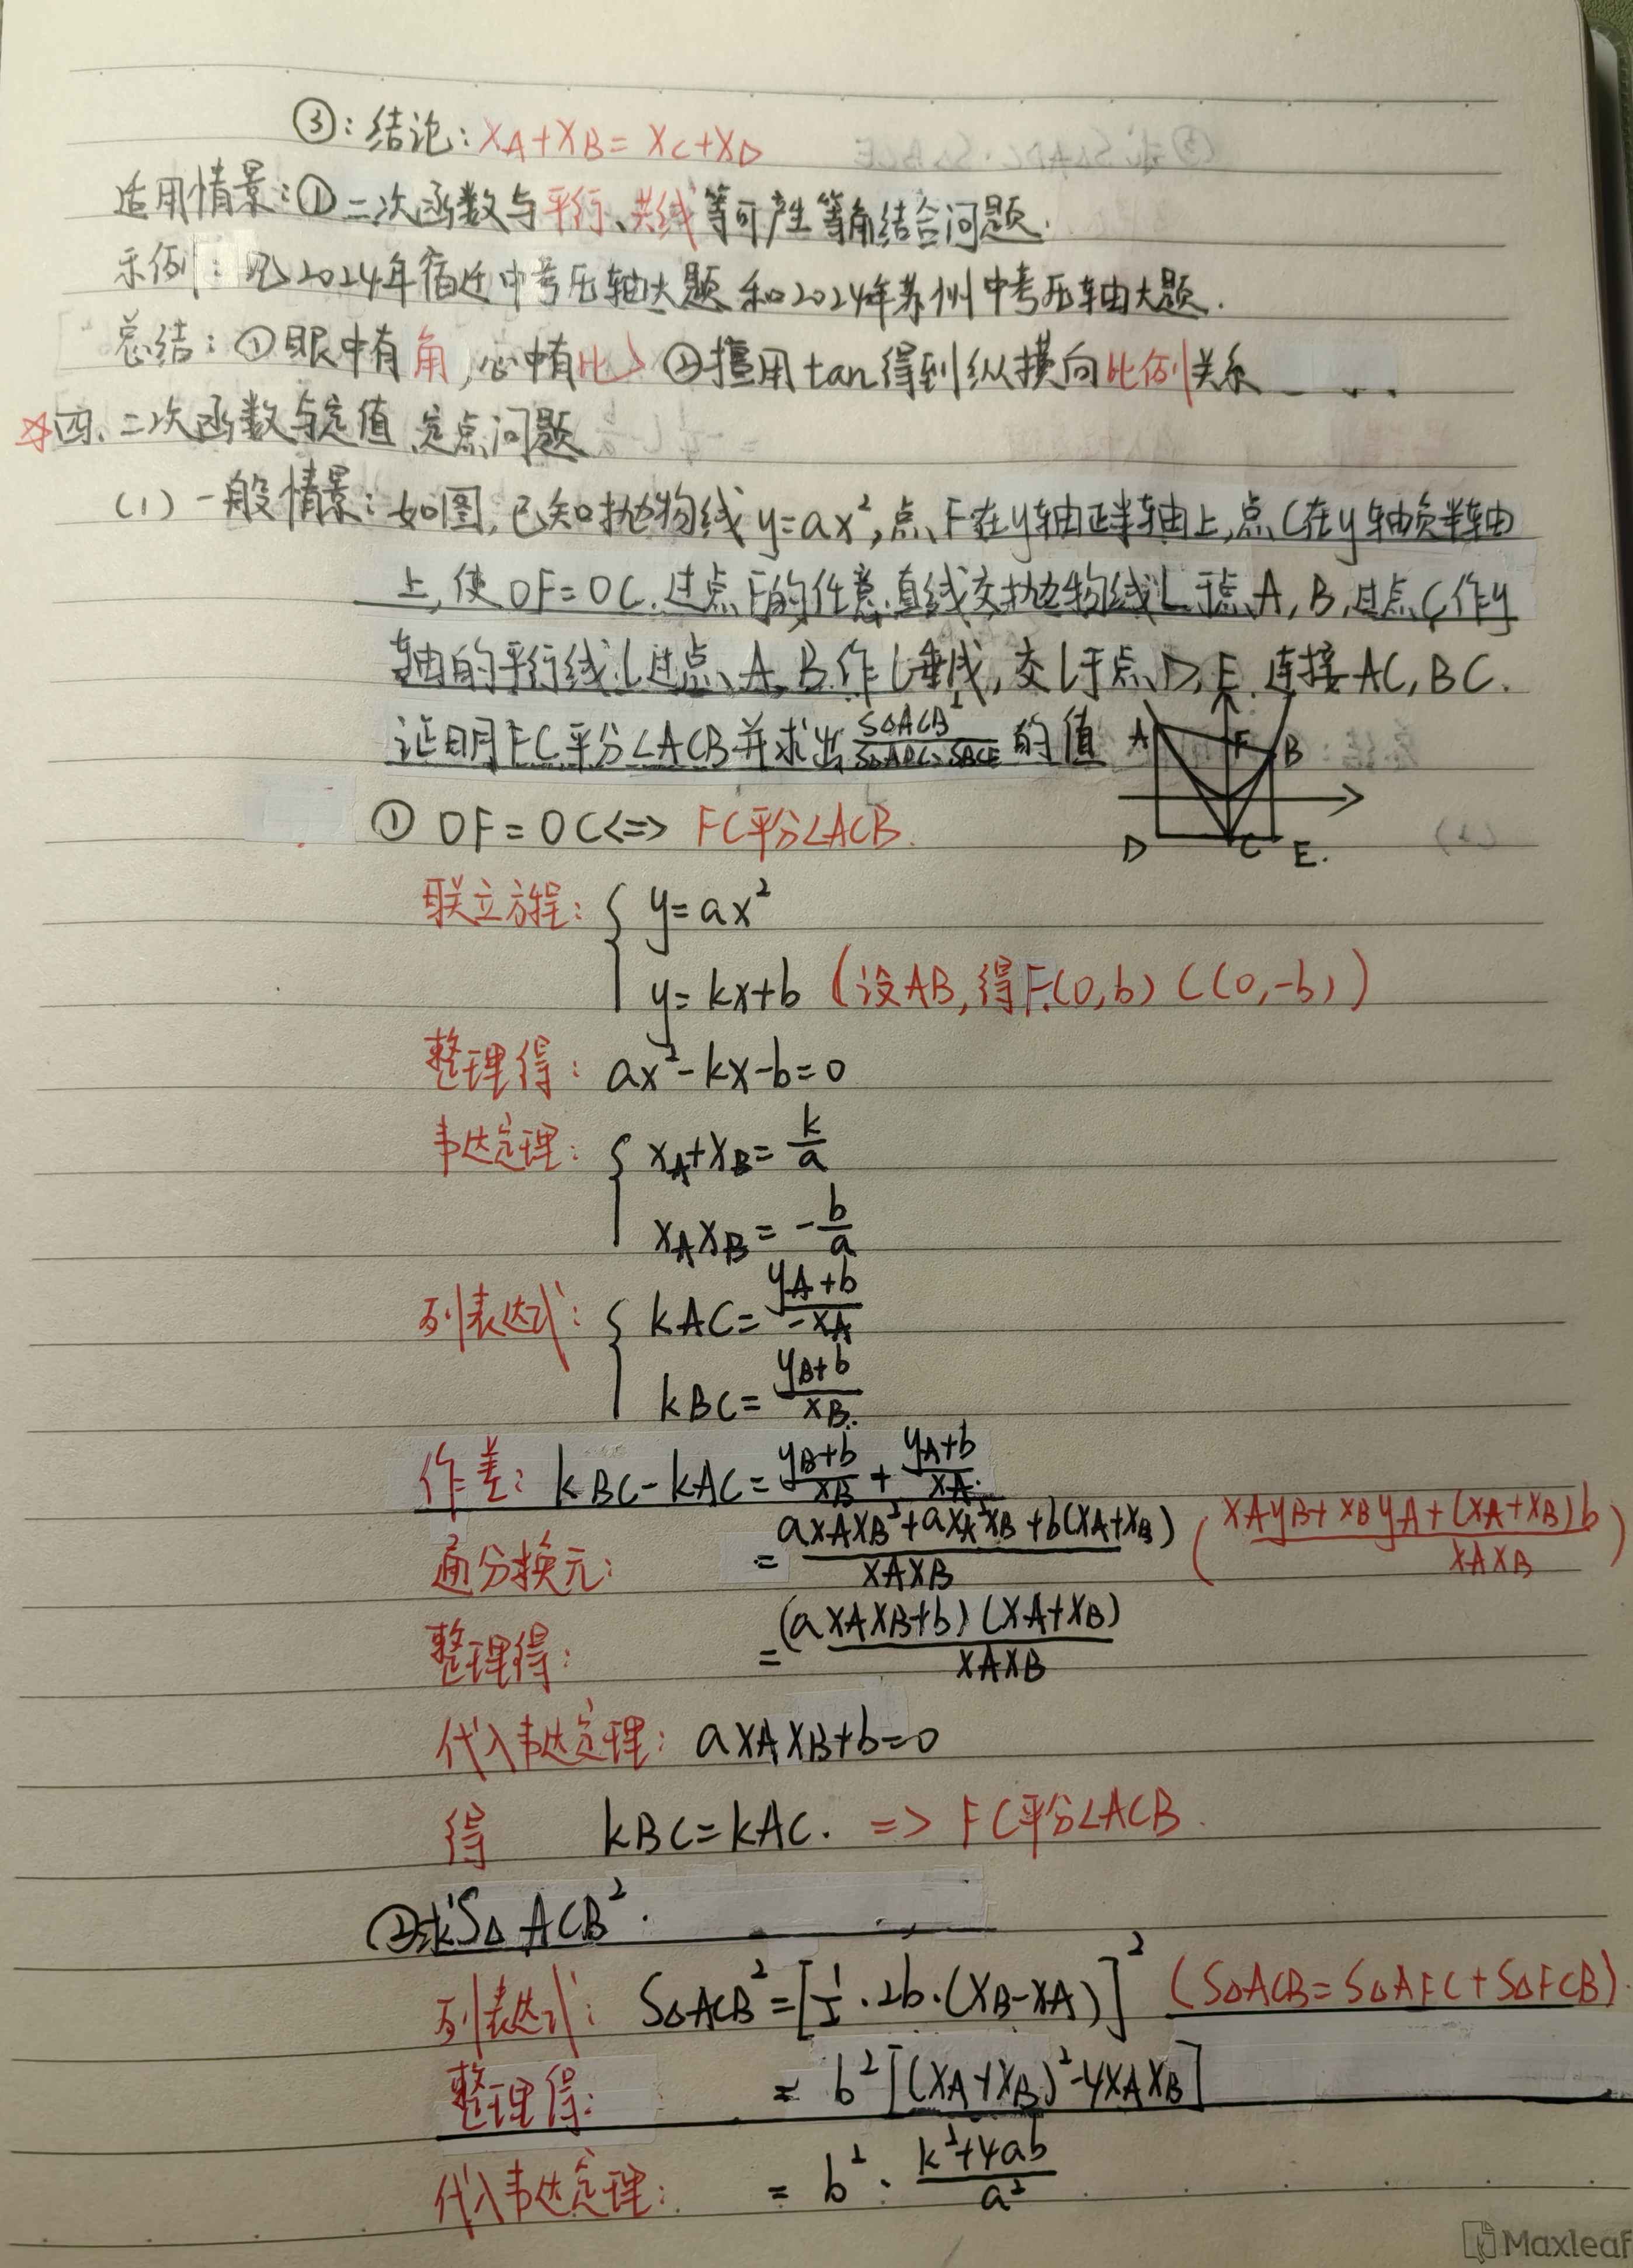 ③:结论:xA+xB=xC+xD
适用情景:①二次函数与平行、共线等可产生等角结合问题.
示例:见2024年宿迁中考压轴大题和2024年苏州中考压轴大题.
总结:①眼中有角,心中有比 ②擅用tan得到纵横向比例关系
☆四、二次函数与定值、定点问题
(1)一般情景:如图,已知抛物线y=ax²,点F在y轴正半轴上,点C在y轴负半轴
上,使OF=OC.过点F的任意直线交抛物线L于点A,B,过点C作y
轴的平行线l过点A,B作l垂线,交l于点D,E.连接AC,BC.
证明FC平分∠ACB并求出S△ACB²/S△ADC·S△BCE的值
A F B
D C E.
① OF=OC<=> FC平分∠ACB.
联立方程: { y=ax²
y=kx+b (设AB,得F(0,b) C(0,-b))
整理得: ax²-kx-b=0
韦达定理: { xA+xB=k/a
xAxB=-b/a
列表达式: { kAC=yA+b/-xA
kBC=yB+b/xB.
作差: kBC-kAC=yB+b/xB+yA+b/xA.
通分换元: =axAxB²+axA²xB+b(xA+xB)/xAxB (xAyB+xByA+(xA+xB)b/xAxB)
整理得: =(axAxB+b)(xA+xB)/xAxB
代入韦达定理: axAxB+b=0
得 kBC=kAC. => FC平分∠ACB.
②求S△ACB².
列表达式: S△ACB²=[1/2·2b·(xB-xA)]² (S△ACB=S△AFC+S△FCB).
整理得: =b²[(xA+xB)²-4xAxB]
代入韦达定理: =b²·k²+4ab/a²
Maxleaf